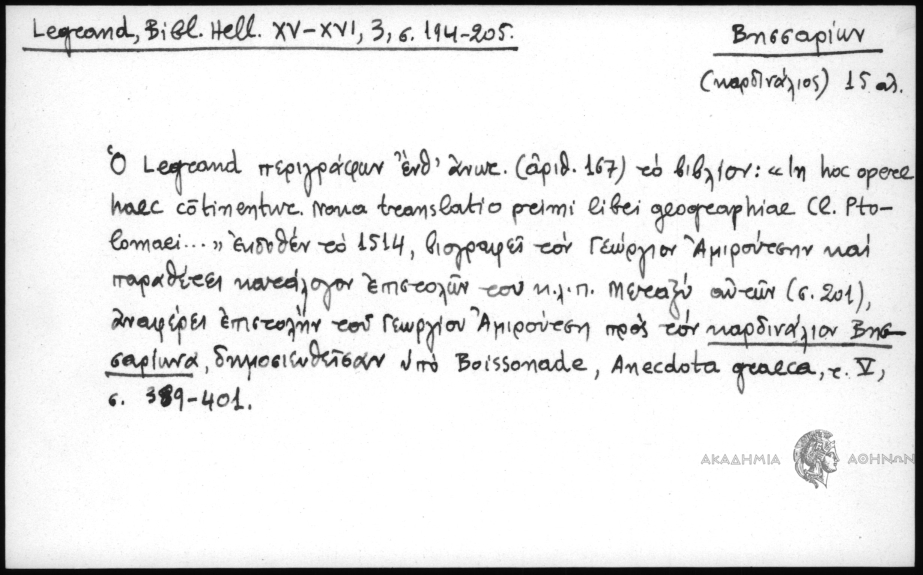 Legrand, Bibl. Hell. XV-XVI, 3, σ. 194-205.
Βησσαρίων
(καρδινάλιος) 15 αι.
Ὁ Legrand περιγράφων ἔνθ' ἄνωτ. (ἀριθ. 167) τὸ βιβλίον: «In hoc opere
haec cōtinentur. Noua translatio primi libri geographiae Cl. Pto-
lomaei...» ἐκδοθὲν τὸ 1514, βιογραφεῖ τὸν Γεώργιον Ἀμιρούτσην καὶ
παραθέτει κατάλογον ἐπιστολῶν του κ.λ.π. Μεταξὺ αὐτῶν (σ. 201),
ἀναφέρει ἐπιστολὴν τοῦ Γεωργίου Ἀμιρούτση πρὸς τὸν καρδινάλιον Βησ-
σαρίωνα, δημοσιευθεῖσαν ὑπὸ Boissonade, Anecdota graeca, τ. V,
σ. 389-401.
ΑΚΑΔΗΜΙΑ ΑΘΗΝΩΝ